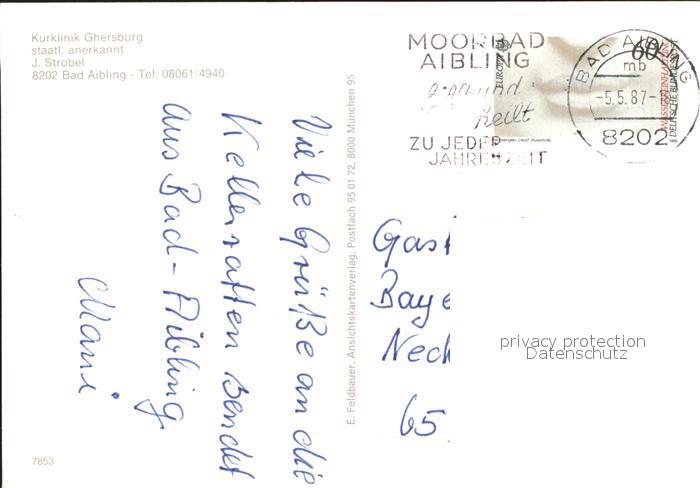 Kurklinik Ghersburg
staatl. anerkannt
J. Strobel
8202 Bad Aibling - Tel. 08061/4940
MOORBAD
AIBLING
heilt
ZU JEDER
JAHRESZEIT
EUROPA
60
DEUTSCHE BUNDESPOST
BAD AIBLING
mb
-5.5.87-
8202
Viele Grüße an die
Kellerratten sendet
aus Bad-Aibling
Mani
E. Feldbauer, Ansichtskartenverlag, Postfach 95 01 72, 8000 München 95
Gast
Baye
Neck
65
privacy protection
Datenschutz
7853